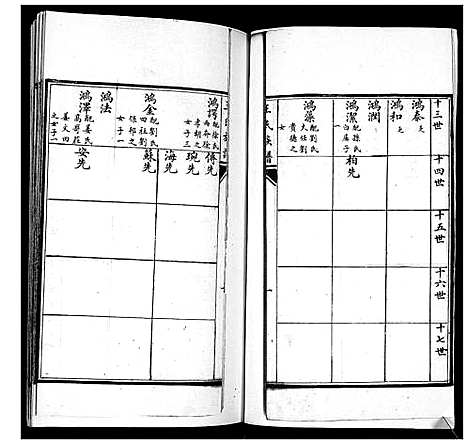 十三世
十四世
十五世
十六世
十七世
鴻泰
鴻和
鴻潤
鴻潔 配孫氏
柏先
鴻藻 配劉氏
大任劉
貴德之
女
王氏族譜
鴻謨 配徐氏
孝朝之
女 子三
傅先
琬先
海先
鴻金 配劉氏
四社劉
保邦之
女 子一
蘇先
鴻法
鴻澤 配姜氏
姜文四
之女 子一
安先